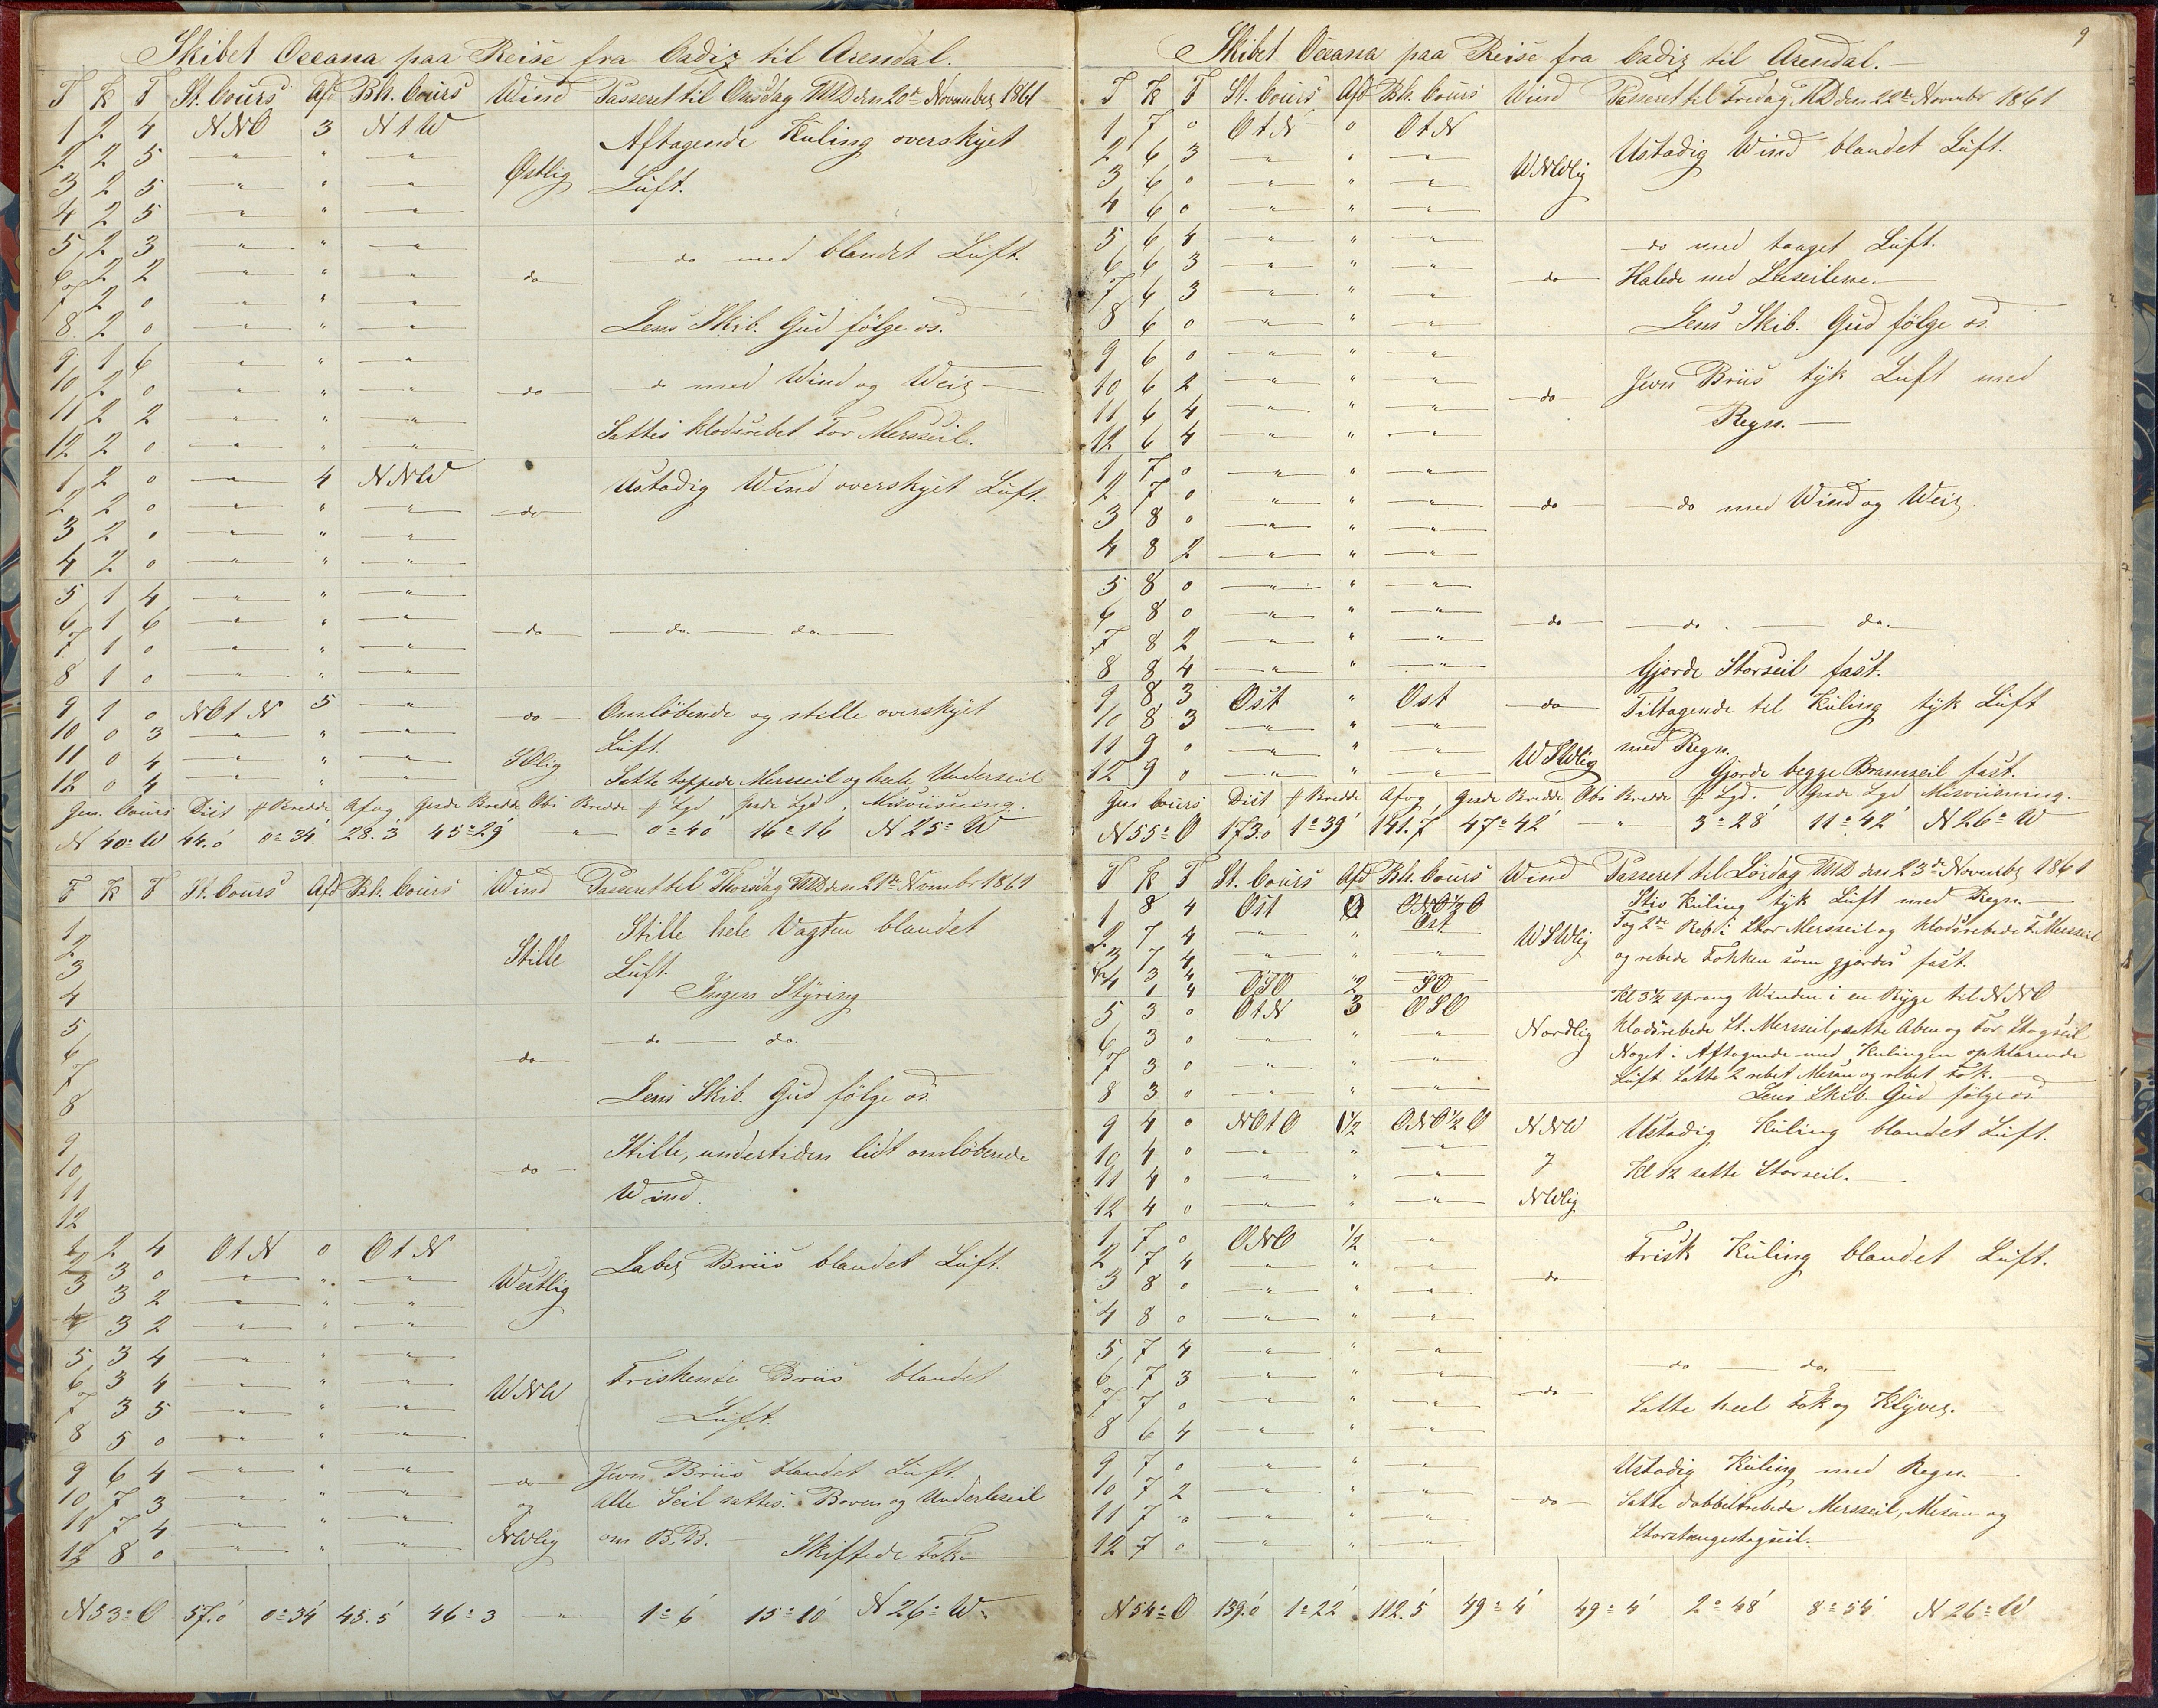 Skibet Oceana paa Reise fra Cadiz til Arendal.
T K F St. Cours Afd Bh. Cours Wind Passeret til Onsdag MD den 20de November 1861
1 2 4 NNO 3 NtW Aftagende Kuling overskyet
2 2 5 " " "
3 2 5 " " " Østlig Luft.
4 2 5 " " "
5 2 3 " " " do med blandet Luft.
6 2 2 " " " do
7 2 0 " " "
8 2 0 " " " Lens Skib. Gud følge os.
9 1 6 " " "
10 2 0 " " " do do med Wind og Weir
11 2 2 " " "
12 2 0 " " " Sattes Klodsrebet For Mersseil.
1 2 0 " 4 NNW Ustadig Wind overskyet Luft.
2 2 0 " " " do
3 2 0 " " "
4 2 0 " " "
5 1 4 " " "
6 1 6 " " " do do do.
7 1 0 " " "
8 1 0 " " "
9 1 0 NOtN 5 " do Omløbende og stille overskyet
10 0 3 " " " Luft.
11 0 4 " " " SOlig
12 0 4 " " " Satte toppede Mersseil og hale Underseil
Gen. Cours Dist f Bredde Afvg Gisde Bredde Obs Bredde f Lgd Gisde Lgd Misviisning.
N 40° W 44.0' 0° 34' 28.3' 45° 29' " 0° 40' 16° 16 N 25° W
T K F St. Cours Afd Bh. Cours Wind Passeret til Thorsdag MD den 21de Novembr 1861
1 Stille hele Vagten blandet
2 Stille
3 Luft.
4 Ingen Styring
5 do do.
6 do
7
8 Lens Skib. Gud følge os.
9 Stille, undertiden lidt omløbende
10 do
11 Wind.
12
1 2 4 OtN 0 OtN Laber Briis blandet Luft.
2 3 0 " " " Westlig
3 3 2 " " "
4 3 2 " " "
5 3 4 " " " Friskende Briis blandet
6 3 4 " " " WNW
7 3 5 " " " Luft.
8 5 0 " " "
9 6 4 " " " do Jevn Briis blandet Luft.
10 7 3 " " " og Alle Seil sattes. Boven og Underleseil
11 7 4 " " " NWlig om B.B.
12 8 0 " " " Skiftede Fok.
N 53° O 57.0' 0° 34' 45.5' 46° 3 " 1° 6' 15° 10' N 26° W.
9
Skibet Oceana paa Reise fra Cadiz til Arendal.
T K F St. Cours Afd Bh. Cours Wind Passeret til Fredag MD den 22de Novembr 1861
1 7 0 OtN 0 OtN Ustadig Wind blandet Luft.
2 6 3 " " " WNWlig
3 6 0 " " "
4 6 0 " " "
5 6 4 " " " do med taaget Luft.
6 6 3 " " " do Halede ned Læseilene.
7 6 3 " " "
8 6 0 " " " Lens Skib. Gud følge os.
9 6 0 " " "
10 6 2 " " " do Jevn Briis tyk Luft med
11 6 4 " " " Regn.
12 6 4 " " "
1 7 0 " " "
2 7 0 " " " do do med Wind og Weir.
3 8 0 " " "
4 8 2 " " "
5 8 0 " " "
6 8 0 " " " do do. do.
7 8 2 " " "
8 8 4 " " " Gjorde Storseil fast.
9 8 3 Ost " Ost do Tiltagende til Kuling tyk Luft
10 8 3 " " "
11 9 0 " " " WSWlig med Regn.
12 9 0 " " " Gjorde begge Bramseil fast.
Gen Cours Dist f Bredde Afvg Gisde Bredde Obs Bredde f Lgd. Gisde Lgd Misviisning.
N 55° O 173.0' 1° 39' 141.7 47° 42' " 3° 28' 11° 42' N 26° W
T K F St. Cours Afd Bh. Cours Wind Passeret til Lørdag MD den 23de Novembr 1861
1 8 4 Ost 0 ONO½O Stiv Kuling tyk Luft med Regn.
2 7 4 " " Ost WSWlig Tog 2de Reb i Stor Mersseil og Klodsrebede F. Mersseil
3 7 4 " " " og rebede Fokken som gjordes fast.
4 3 4 OSO 2 SO Kl 3½ sprang Winden i en Byge til NNO
5 3 0 OtN 3 OSO Nordlig Klodsrebede St. Mersseil, satte Aben og For Stagseil
6 3 0 " " " Noget i Aftagende med Kulingen opklarende
7 3 0 " " " Luft. Satte 2 rebet Mesan og rebet Fok.
8 3 0 " " " Lens Skib Gud følge os
9 4 0 NOtO 1½ ONO½O NNW Ustadig Kuling blandet Luft.
10 4 0 " " " og
11 4 0 " " " Kl 12 satte Storseil.
12 4 0 " " " NWlig
1 7 0 ONO ½ " Frisk Kuling blandet Luft.
2 7 4 " " "
3 8 0 " " " do
4 8 0 " " "
5 7 4 " " "
6 7 3 " " " do do.
7 7 0 " " " do Satte heel Fok og Klyver.
8 6 4 " " "
9 7 0 " " " Ustadig Kuling med Regn.
10 7 2 " " " do Satte dobbeltrebede Mersseil, Mesan og
11 7 0 " " " Storstangestagseil.
12 7 0 " " "
N 54° O 139.0' 1° 22' 112.5' 49° 4' 49° 4' 2° 48' 8° 54' N 26° W